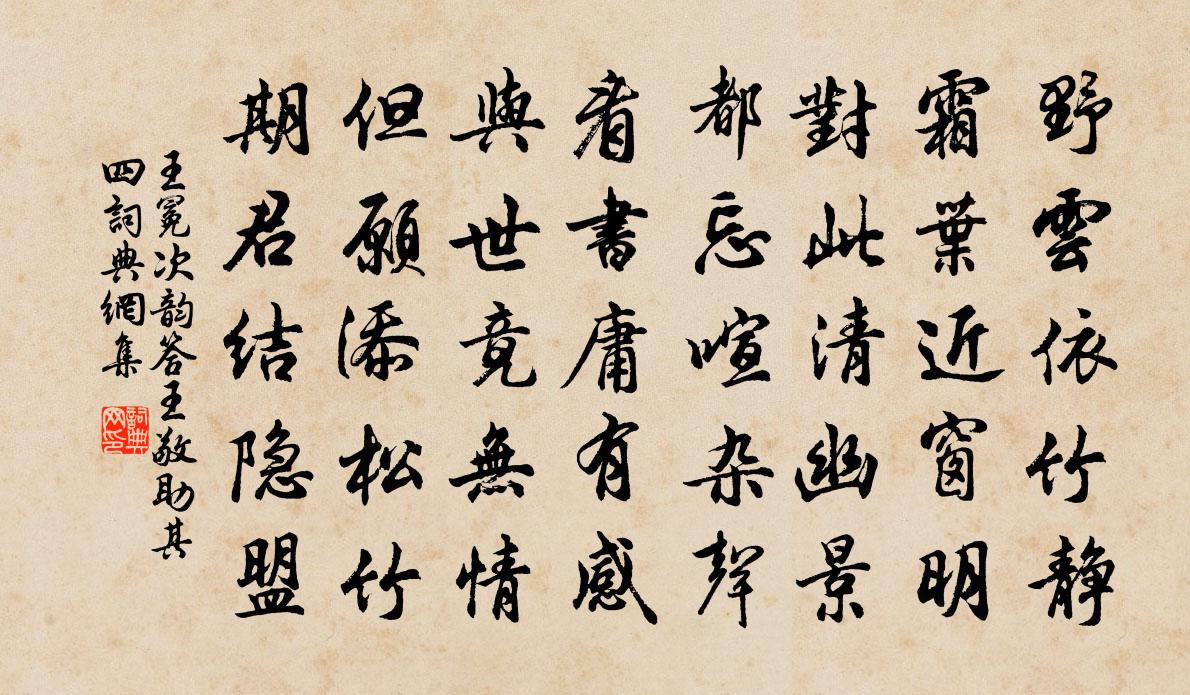 野雲依竹静
霜葉近窗明
對此清幽景
都忘喧杂聲
看書庸有感
與世竟無情
但願添松竹
期君结隐盟
王冕次韵答王敬助其
四詞典網集
詞典
网印